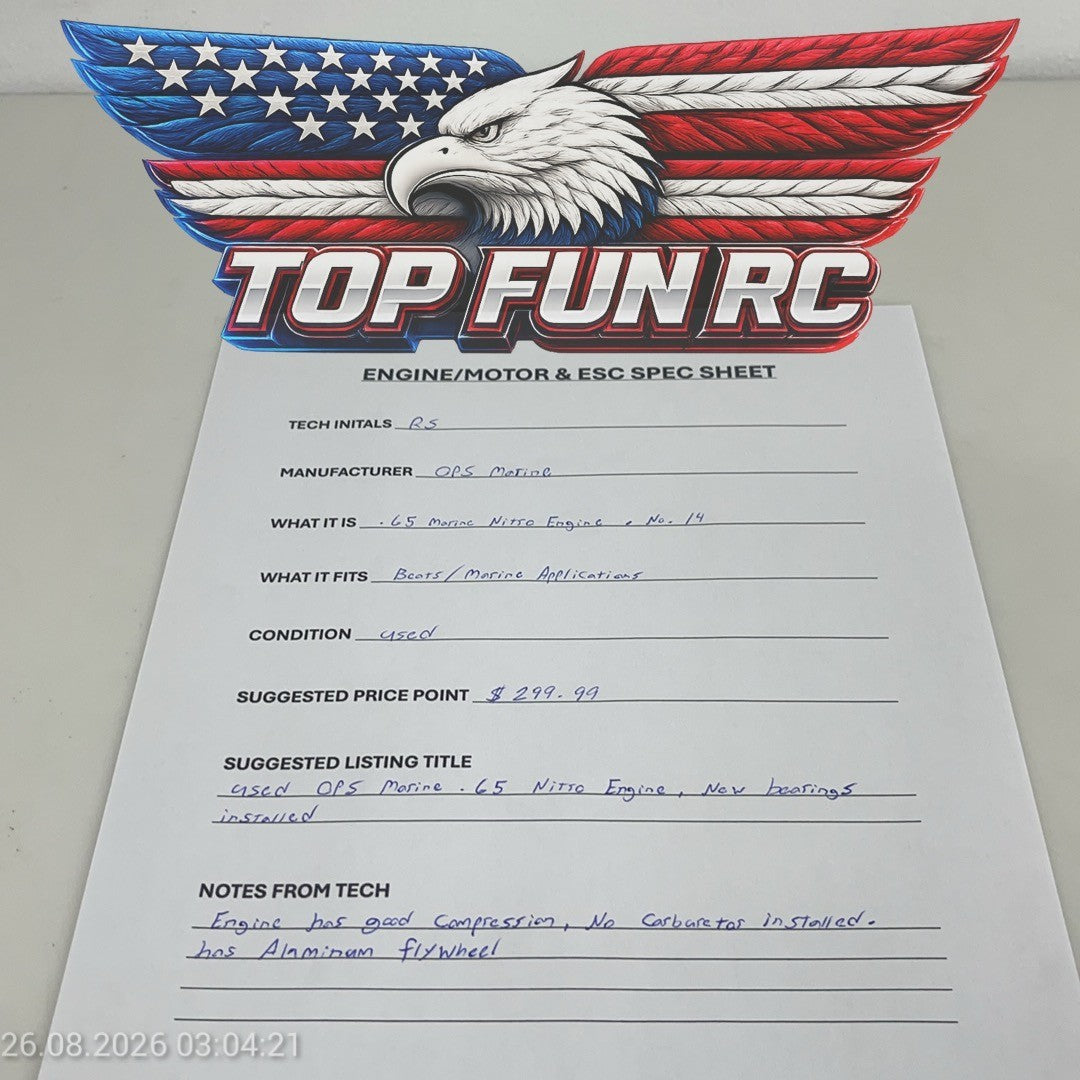 TOP FUN RC
ENGINE/MOTOR & ESC SPEC SHEET
TECH INITALS RS
MANUFACTURER OPS Marine
WHAT IT IS .65 Marine Nitro Engine, No. 14
WHAT IT FITS Boats/Marine Applications
CONDITION used
SUGGESTED PRICE POINT $299.99
SUGGESTED LISTING TITLE
used OPS Marine .65 Nitro Engine, New bearings
installed
NOTES FROM TECH
Engine has good Compression, No Carburetor installed.
has Aluminum flywheel
26.08.2026 03:04:21